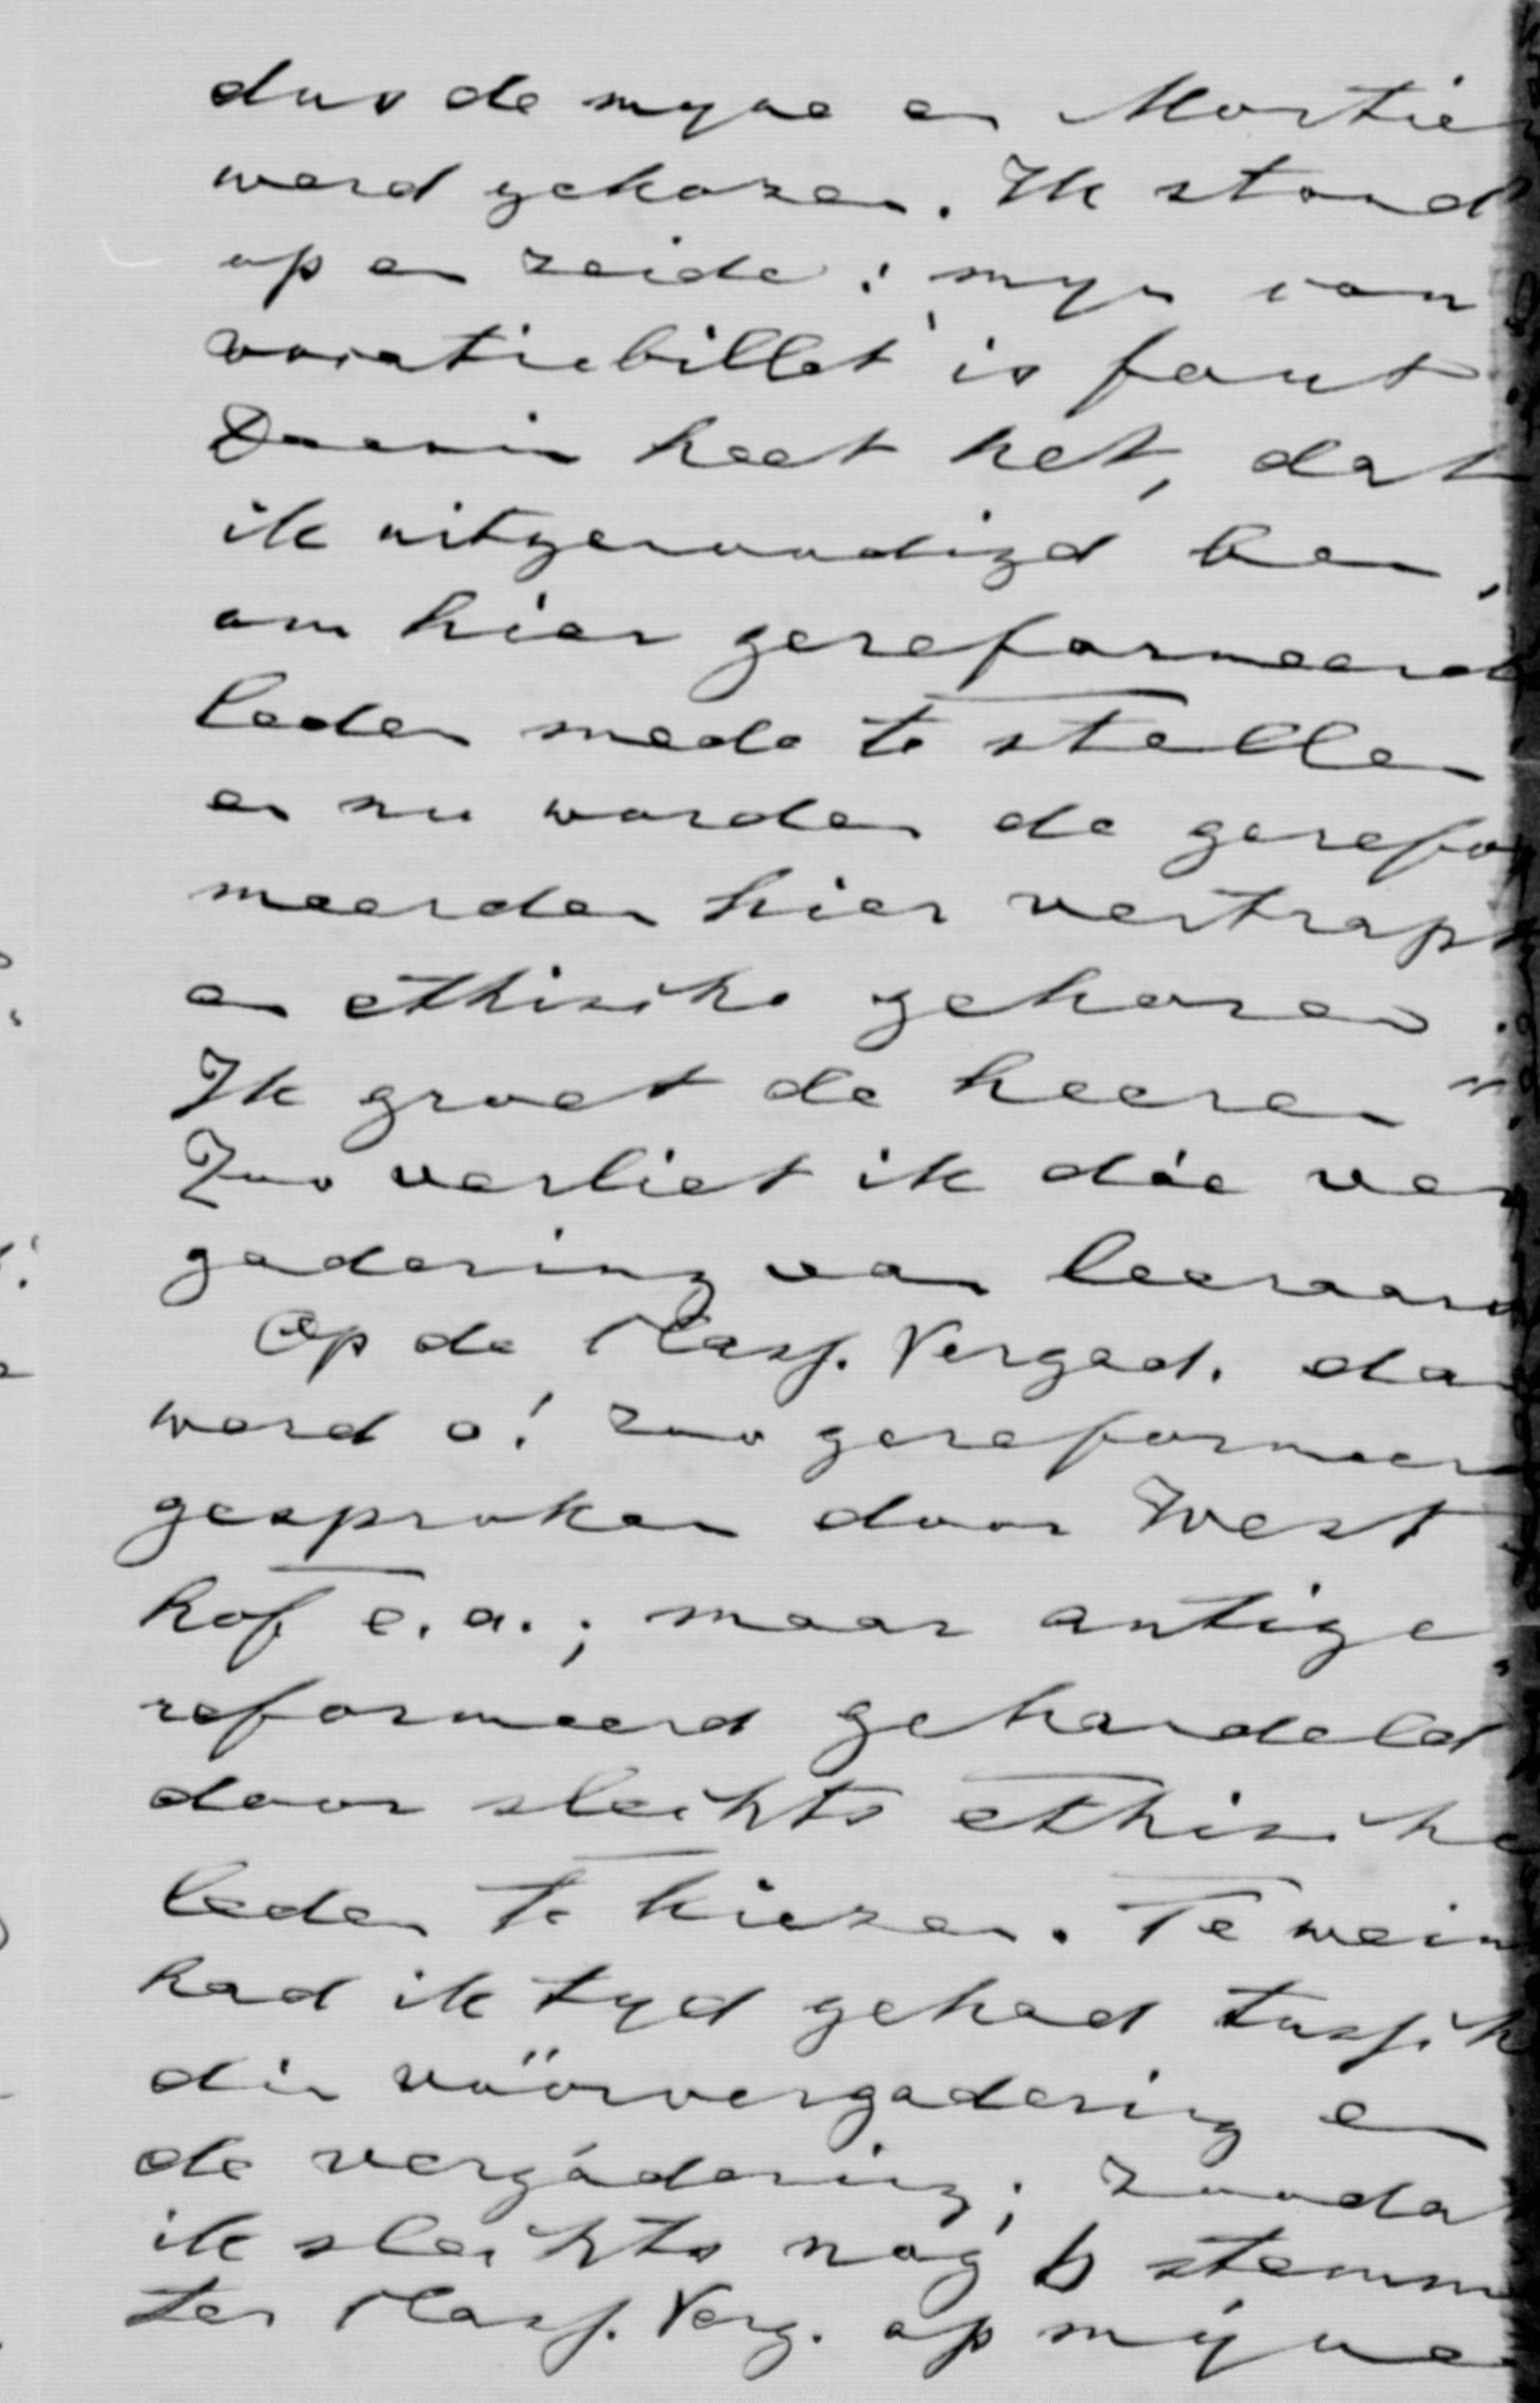 dus de myne en Mortier
werd gekozen. Ik stond
op en zeide: "myn con
vocatiebillet is fout.
Daarin heet het, dat
ik uitgenoodigd ben,
om hier gereformeerde
leden mede te stellen
en nu worden de gerefor
meerden hier vertrapt
en ethische gekozen.
Ik groet de heeren".
Zoo verliet ik die ver
gadering van leeraars
Op de Klass. Vergad. dan
werd o! zoo gereformeerd
gesproken door West
hof e.a.; maar antige
reformeerd gehandeld
door slechts ethische
leden te kiezen. Te wein
had ik tyd gehad tussch
die vöörvergadering en
de vergádering; zoodat
ik slechts nog 6 stemm
ter Klass. Verg. op myne